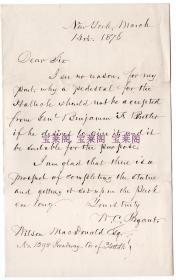 New York, March
14th. 1876
Dear Sir
I see no reason, for my
part, why a pedestal for the
Halleck should not be accepted
from Gen'l Benjamin F. Butler
if he desires to give it and it
be suitable for the purpose.
I am glad that there is a
prospect of completing the statue
and getting it set up in the Park
ere long.
Yours truly
W. C. Bryant.
Wilson MacDonald Esq
No 1290 Broadway
宝莱阁 宝莱阁 宝莱阁
宝莱阁 宝莱阁 宝莱阁